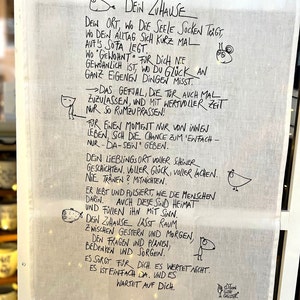 DEIN ZUHAUSE
DEIN ORT, WO DIE SEELE SOCKEN TRÄGT,
WO DEIN ALLTAG SICH KURZ MAL
AUFS SOFA LEGT.
WO "GEWOHNT" FÜR DICH NIE
GEWÖHNLICH IST, WO DU GLÜCK AN
GANZ EIGENEN DINGEN MISST.
DAS GEFÜHL, DIE TÜR AUCH MAL
ZUZULASSEN, UND MIT WERTVOLLER ZEIT
NUR SO RUMZUPRASSEN!
FÜR EINEN MOMENT NUR VON INNEN
LEBEN, SICH DIE CHANCE ZUM "EINFACH-
NUR-DA-SEIN" GEBEN.
DEIN LIEBLINGSORT VOLLER SCHÖNER
GESCHICHTEN, VOLLER GLÜCK, VOLLER LACHEN.
NIE TRÄNEN? MITNICHTEN.
ER LEBT UND PULSIERT, WIE DIE MENSCHEN
DARIN. AUCH DIESE SIND HEIMAT
UND FÜLLEN IHN MIT SINN.
DEIN ZUHAUSE LÄSST RAUM
ZWISCHEN GESTERN UND MORGEN,
DEN FRAGEN UND PLÄNEN,
BEDENKEN UND SORGEN.
ES SORGT FÜR DICH ES WERTET NICHT.
ES IST EINFACH DA. UND ES
WARTET AUF DICH.